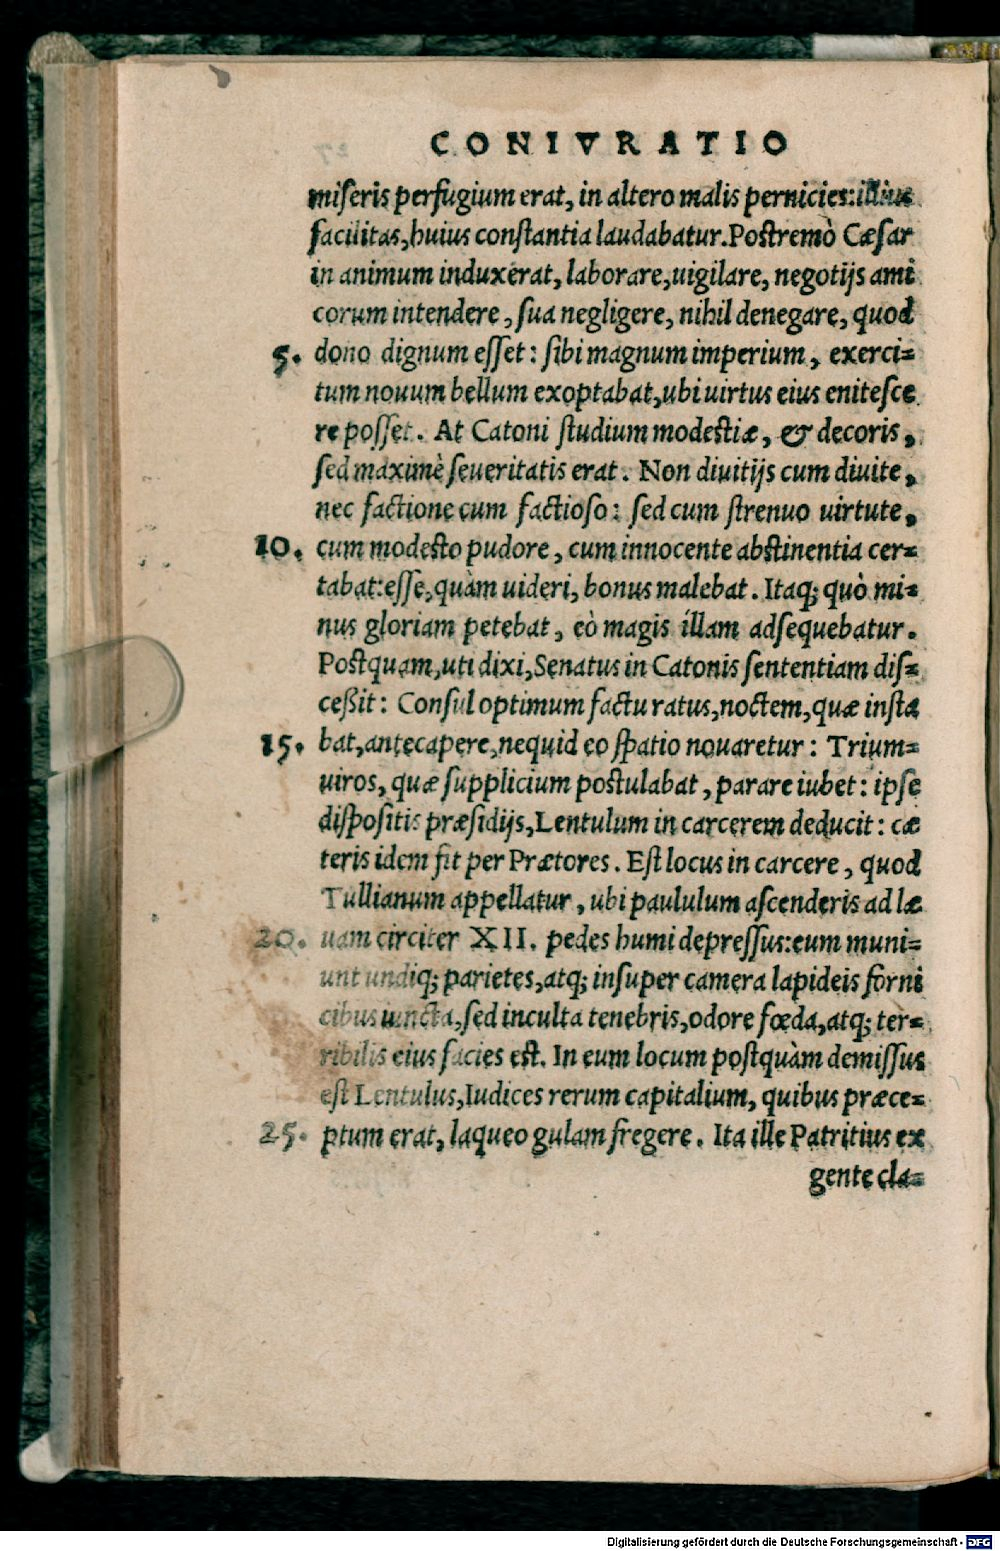 CONIVRATIO
miseris perfugium erat, in altero malis pernicies: illius
facilitas, huius constantia laudabatur. Postremò Cæsar
in animum induxerat, laborare, uigilare, negotijs ami
corum intendere, sua negligere, nihil denegare, quod
5. dono dignum esset: sibi magnum imperium, exerci=
tum nouum bellum exoptabat, ubi uirtus eius enitesce
re posset. At Catoni studium modestiæ, & decoris,
sed maximè seueritatis erat. Non diuitijs cum diuite,
nec factione cum factioso: sed cum strenuo uirtute,
10. cum modesto pudore, cum innocente abstinentia cer=
tabat: esse, quàm uideri, bonus malebat. Itaq; quò mi=
nus gloriam petebat, eò magis illam adsequebatur.
Postquam, uti dixi, Senatus in Catonis sententiam dis=
ceßit: Consul optimum factu ratus, noctem, quæ insta
15. bat, antecapere, nequid eo spatio nouaretur: Trium=
uiros, quæ supplicium postulabat, parare iubet: ipse
dispositis præsidijs, Lentulum in carcerem deducit: cæ
teris idem fit per Prætores. Est locus in carcere, quod
Tullianum appellatur, ubi paululum ascenderis ad læ
20. uam circiter XII. pedes humi depressus: eum muni=
unt undiq; parietes, atq; insuper camera lapideis forni
cibus uincta, sed inculta tenebris, odore fœda, atq; ter=
ribilis eius facies est. In eum locum postquàm demissus
est Lentulus, Iudices rerum capitalium, quibus præce=
25. ptum erat, laqueo gulam fregere. Ita ille Patritius ex
gente cla=
Digitalisierung gefördert durch die Deutsche Forschungsgemeinschaft - DFG